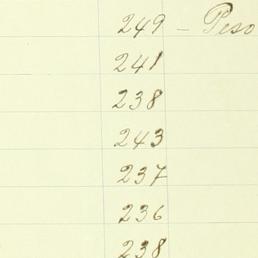 249 - Peso
241
238
243
237
236
238